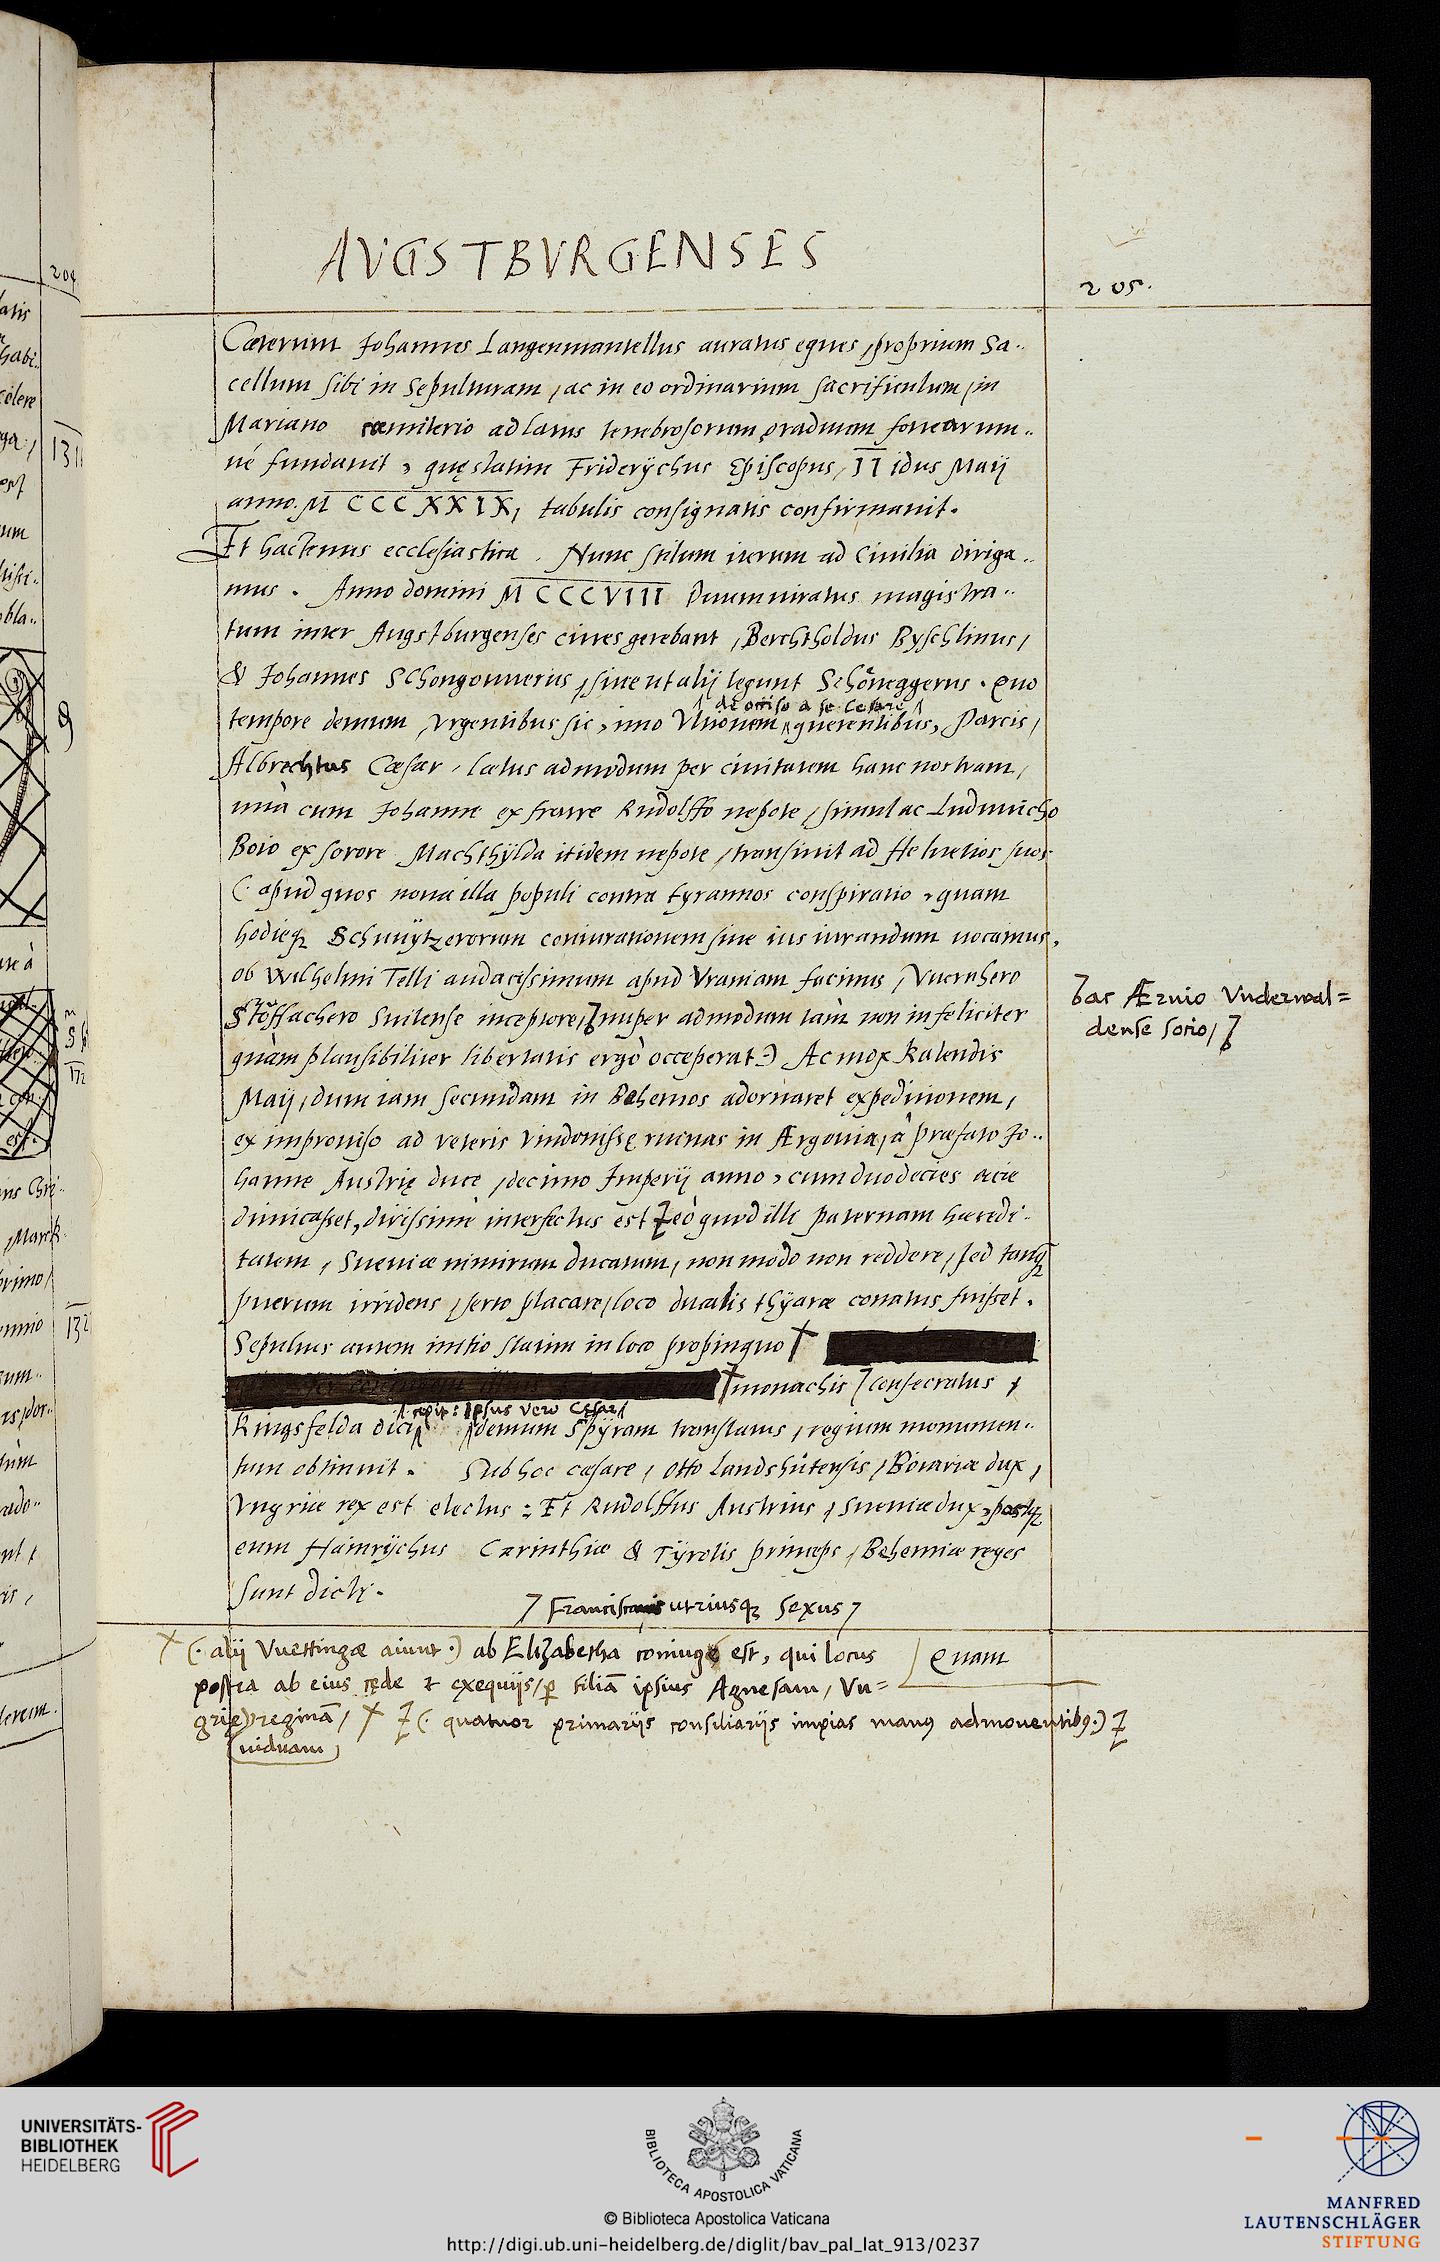 AVGSTBVRGENSES
205.
Cæterum Johannes Langenmantellus auratus eques, proprium Sa..
cellum sibi in Sepulturam, ac in eo ordinarium sacrificulum, in
Mariano cæmiterio ad latus tenebrosorum graduum fornearum..
né fundauit, quę statim Friderÿchus Episcopus, II idus Maij
anno. M CCC XXIX, tabulis consignatis confirmauit.
Et hactenus ecclesiastica. Nunc stilum iterum ad Ciuilia diriga..
mus. Anno domini M CCCVIII Duumuiratus magistra..
tum inter Augstburgenses ciues gerebant, Berchtholdus Byschlinus,
& Johannes Schongouuerus, siue ut alij legunt Schöneggerus. Quo
de occiso a se Cesare
tempore demum, vrgentibus sic, imo Vltionem querentibus, Parcis,
Albrechtus Cæsar, lætus admodum per ciuitatem hanc nostram,
unà cum Johanne ex fratre Rudolffo nepote, simul ac Luduuicho
Boio ex sorore Machthÿlda itidem nepote, transiuit ad Heluetios suos
(. apud quos noua illa populi contra tyrannos conspiratio, quam
hodieqꝫ Schuuÿtzerorum coniurationem siue ius iurandum uocamus,
ob Wilhelmi Telli audacissimum apud Vraniam facinus, Vuernhero
Stoffachero Suitense inceptore, nuper admodum tàm non infeliciter
ꝿac Ærnio Vnderwal=
dense socio,
quàm plausibiliter libertatis ergò occeperat.) Ac mox Kalendis
Maij, dum iam secundam in Behemos adornaret expeditionem,
ex improuiso ad veteris Vindonissę ruinas in Ærgouia, à præfato Jo..
hanne Austrię duce, decimo Imperij anno, cum duodecies acie
dimicasset, dirissimè interfectus est eò quod illi paternam hæredi..
tatem, Sueuiæ nimirum ducatum, non modo non reddere, sed tanqꝫ
puerum irridens, serto placare, loco ducalis thÿaræ conatus fuisset.
Sepultus autem initio statim in loco propinquo †
† monachis consecratus,
cepit: ipsus vero Cęsar
Kingsfelda dici demum Spÿram translatus, regium monumen..
tum obtinuit. Sub hoc cæsare, Otto Landshůtensis, Boiariæ dux,
Vngriæ rex est electus: Et Rudolffus Austrius, Sueuiæ dux, postqꝫ
eum Hainrÿchus Carinthiæ & Tÿrolis princeps, Behemiæ reges
sunt dicti.
Franciscanis utriusqꝫ sexus
† (. alij Vuettingæ aiunt.) ab Elizabetha coniuge est, qui locus Quam
postea ab eius cęde & exequijs, per filiã ipsius Agnesam, Vn=
grię reginã, † (. quatuor primarijs consiliarijs impias manus admouentibꝰ.)
uiduam
UNIVERSITÄTS-
BIBLIOTHEK
HEIDELBERG
BIBLIOTHECA APOSTOLICA VATICANA
© Biblioteca Apostolica Vaticana
http://digi.ub.uni-heidelberg.de/diglit/bav_pal_lat_913/0237
MANFRED
LAUTENSCHLÄGER
STIFTUNG